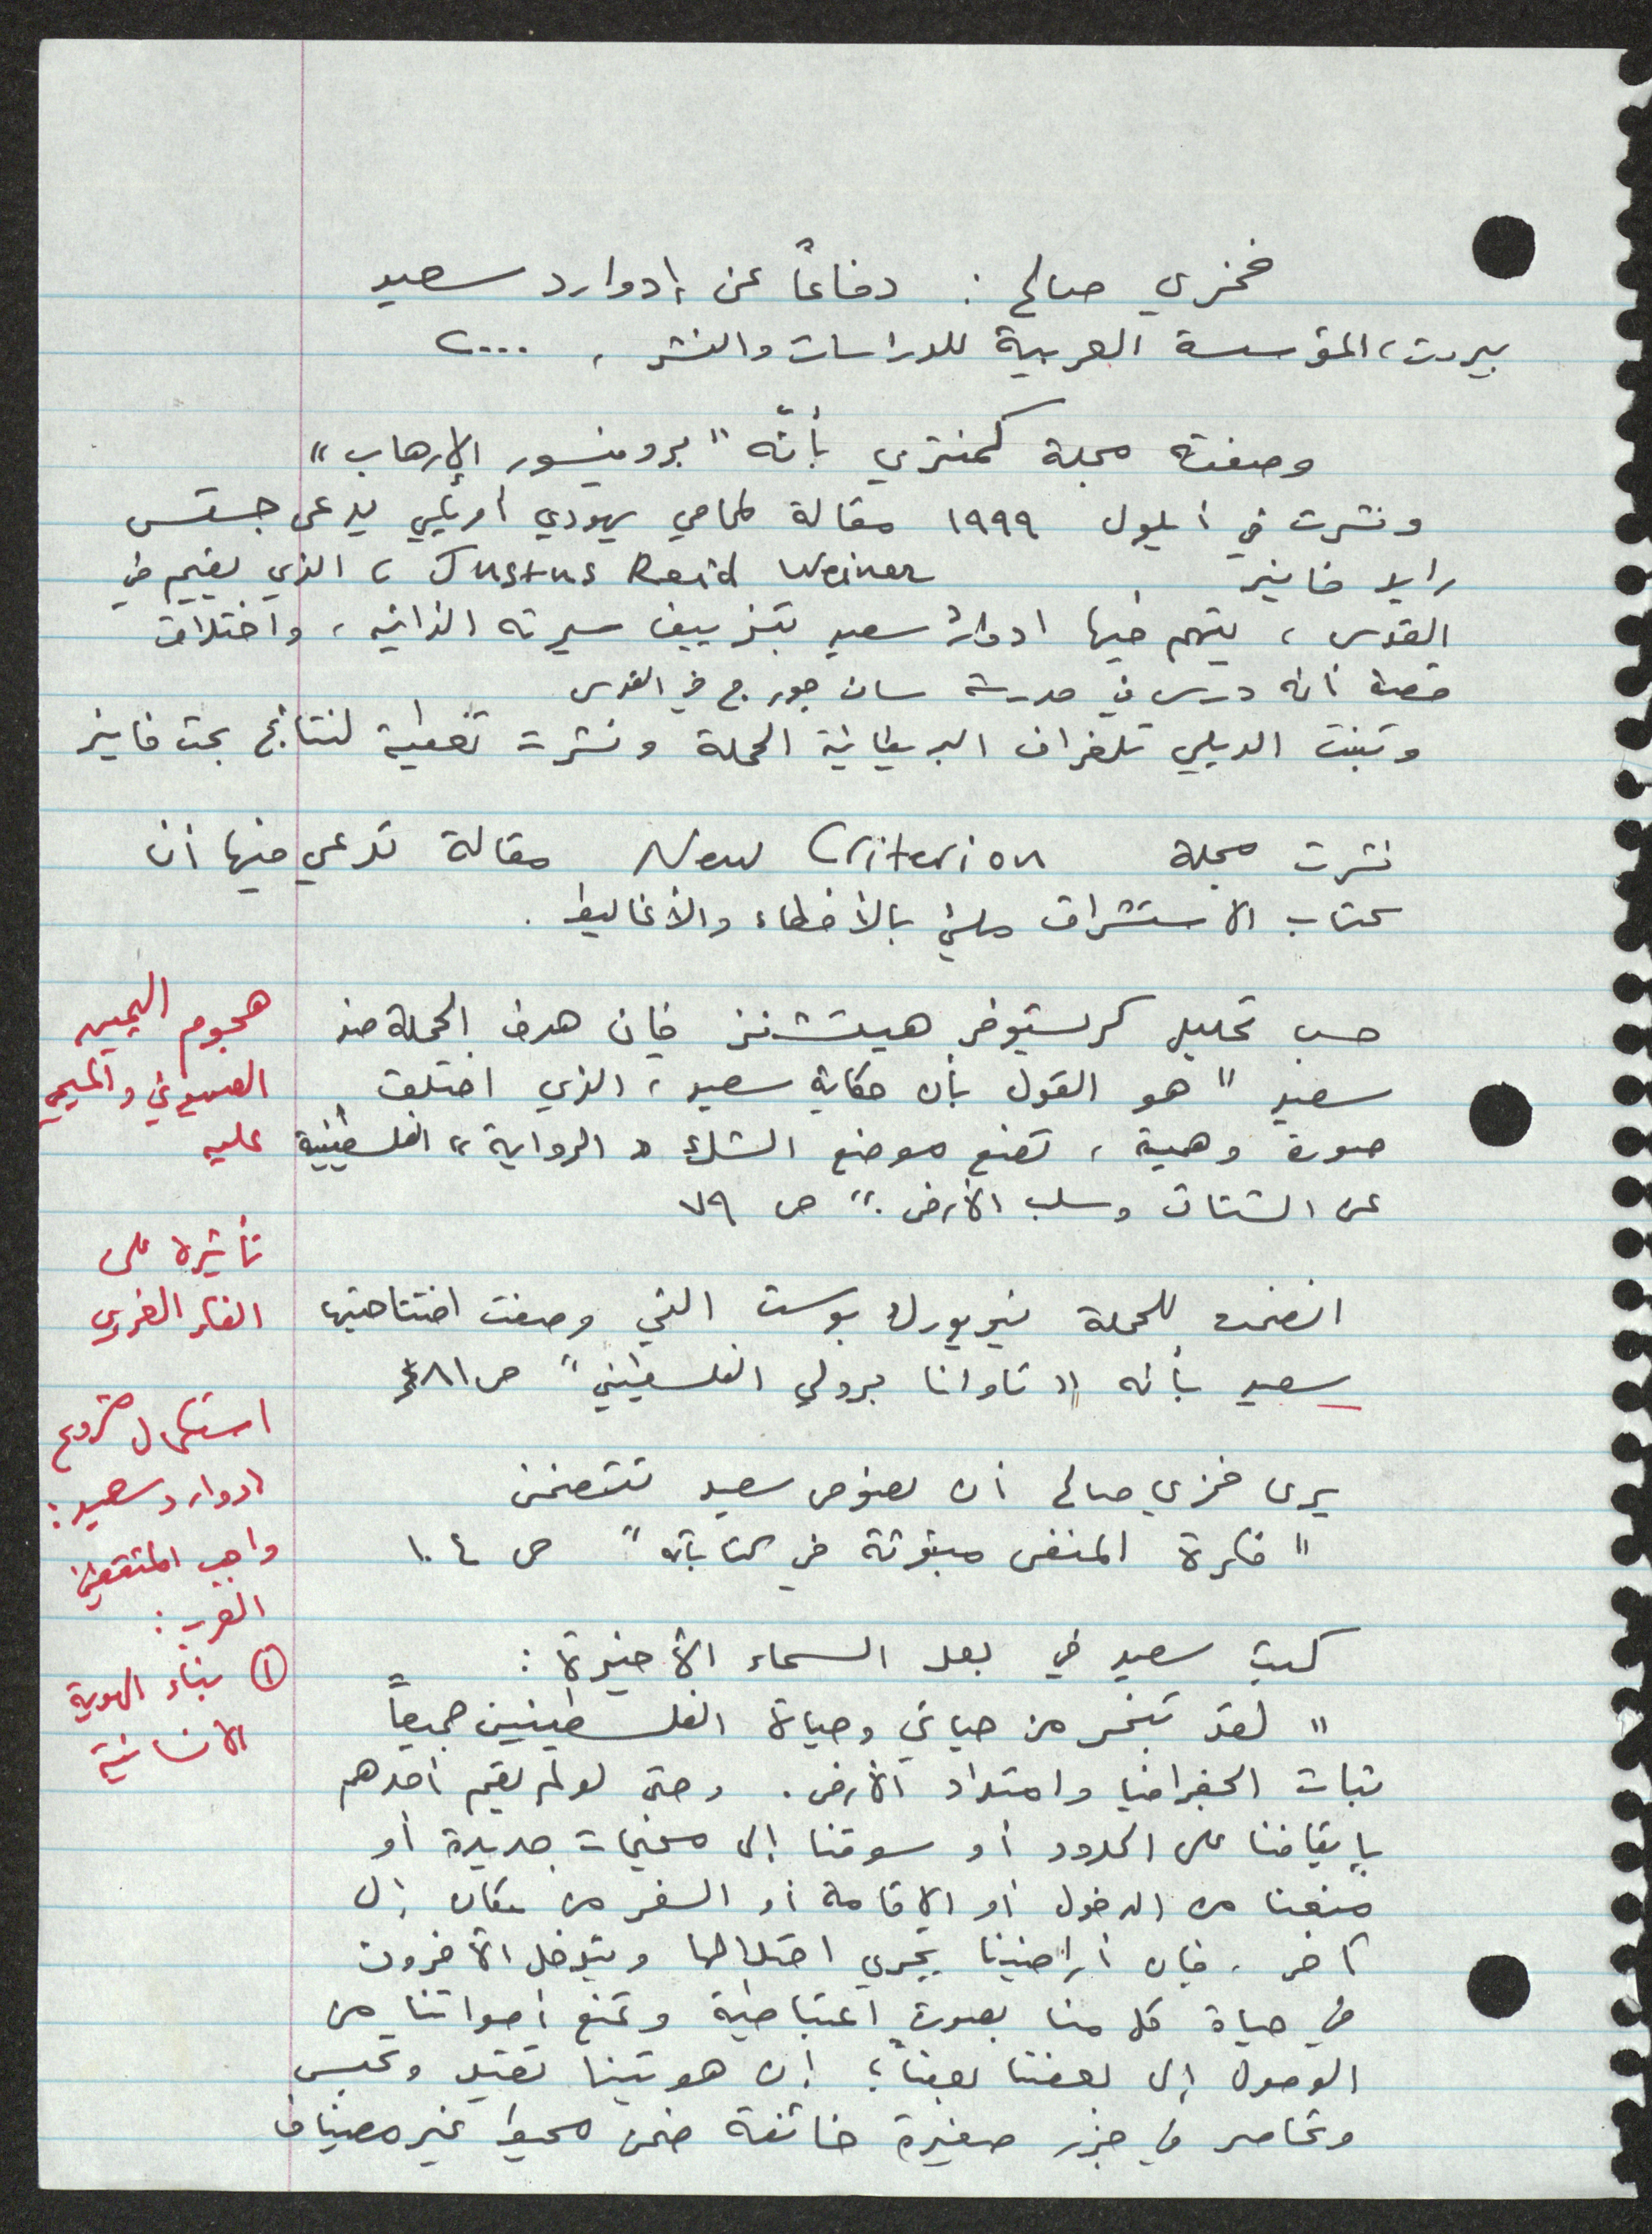 فخري صالح : دفاعاً عن إدوارد سعيد
بيروت، المؤسسة العربية للدراسات والنشر ، ٢٠٠٠
وصفته مجلة كمنتري بأنّه "بروفيسور الإرهاب"
ونشرت في أيلول ١٩٩٩ مقالة لمحامي يهودي أمريكي يدعى جستس
رايد فاينر Justus Reid Weiner ، الذي يقيم في
القدس ، يتهم فيها ادوارد سعيد بتزييف سيرته الذاتية ، واختلاق
قصة أنه درس في مدرسة سان جورج في القدس
وتبنت الديلي تلغراف البريطانية الحملة ونشرت تغطية لنتائج بحث فاينر
نشرت مجلة New Criterion مقالة تدعي فيها أن
كتاب الاستشراق مليئ بالأخطاء والأغاليط .
حسب تحليل كريستوفر هيتشنز فإن هدف الحملة ضد
سعيد "هو القول بأن حكاية سعيد ، الذي اختلق
صورة وهمية ، تضع موضع الشك "الرواية" الفلسطينية
عن الشتات وسلب الأرض ." ص ٧٩
انضمت للحملة نيويورك بوست التي وصفت افتتاحيتها
سعيد بأنه "تاوانا برولي الفلسطيني" ص ٨١
يرى فخري صالح أن نصوص سعيد تتضمن
"فكرة المنفى مبثوثة في كتاباته" ص ١٠٤
كتب سعيد في بعد السماء الأخيرة :
"لقد تبخر من حياتي وحياة الفلسطينيين جميعاً
ثبات الجغرافيا وامتداد الأرض . وحتى لو لم يقم أحدهم
بإيقافنا على الحدود أو سوقنا إلى مخيمات جديدة أو
منعنا من الدخول أو الإقامة أو السفر من مكان إلى
آخر ، فإن أراضينا يجري احتلالها ويتدخل الآخرون
في حياة كل منا بصورة اعتباطية وتمنع أصواتنا من
الوصول إلى بعضنا بعضاً ؛ إن هويتنا تقيد وتحبس
وتحاصر في جزر صغيرة خائفة ضمن محيط غير مضياف
هجوم اليمين
الصهيوني والمسيحي
عليه
تأثيره على
الفكر الغربي
استكمال مشروع
ادوارد سعيد :
واجب المثقفين
العرب :
① بناء الهوية
الانسانية